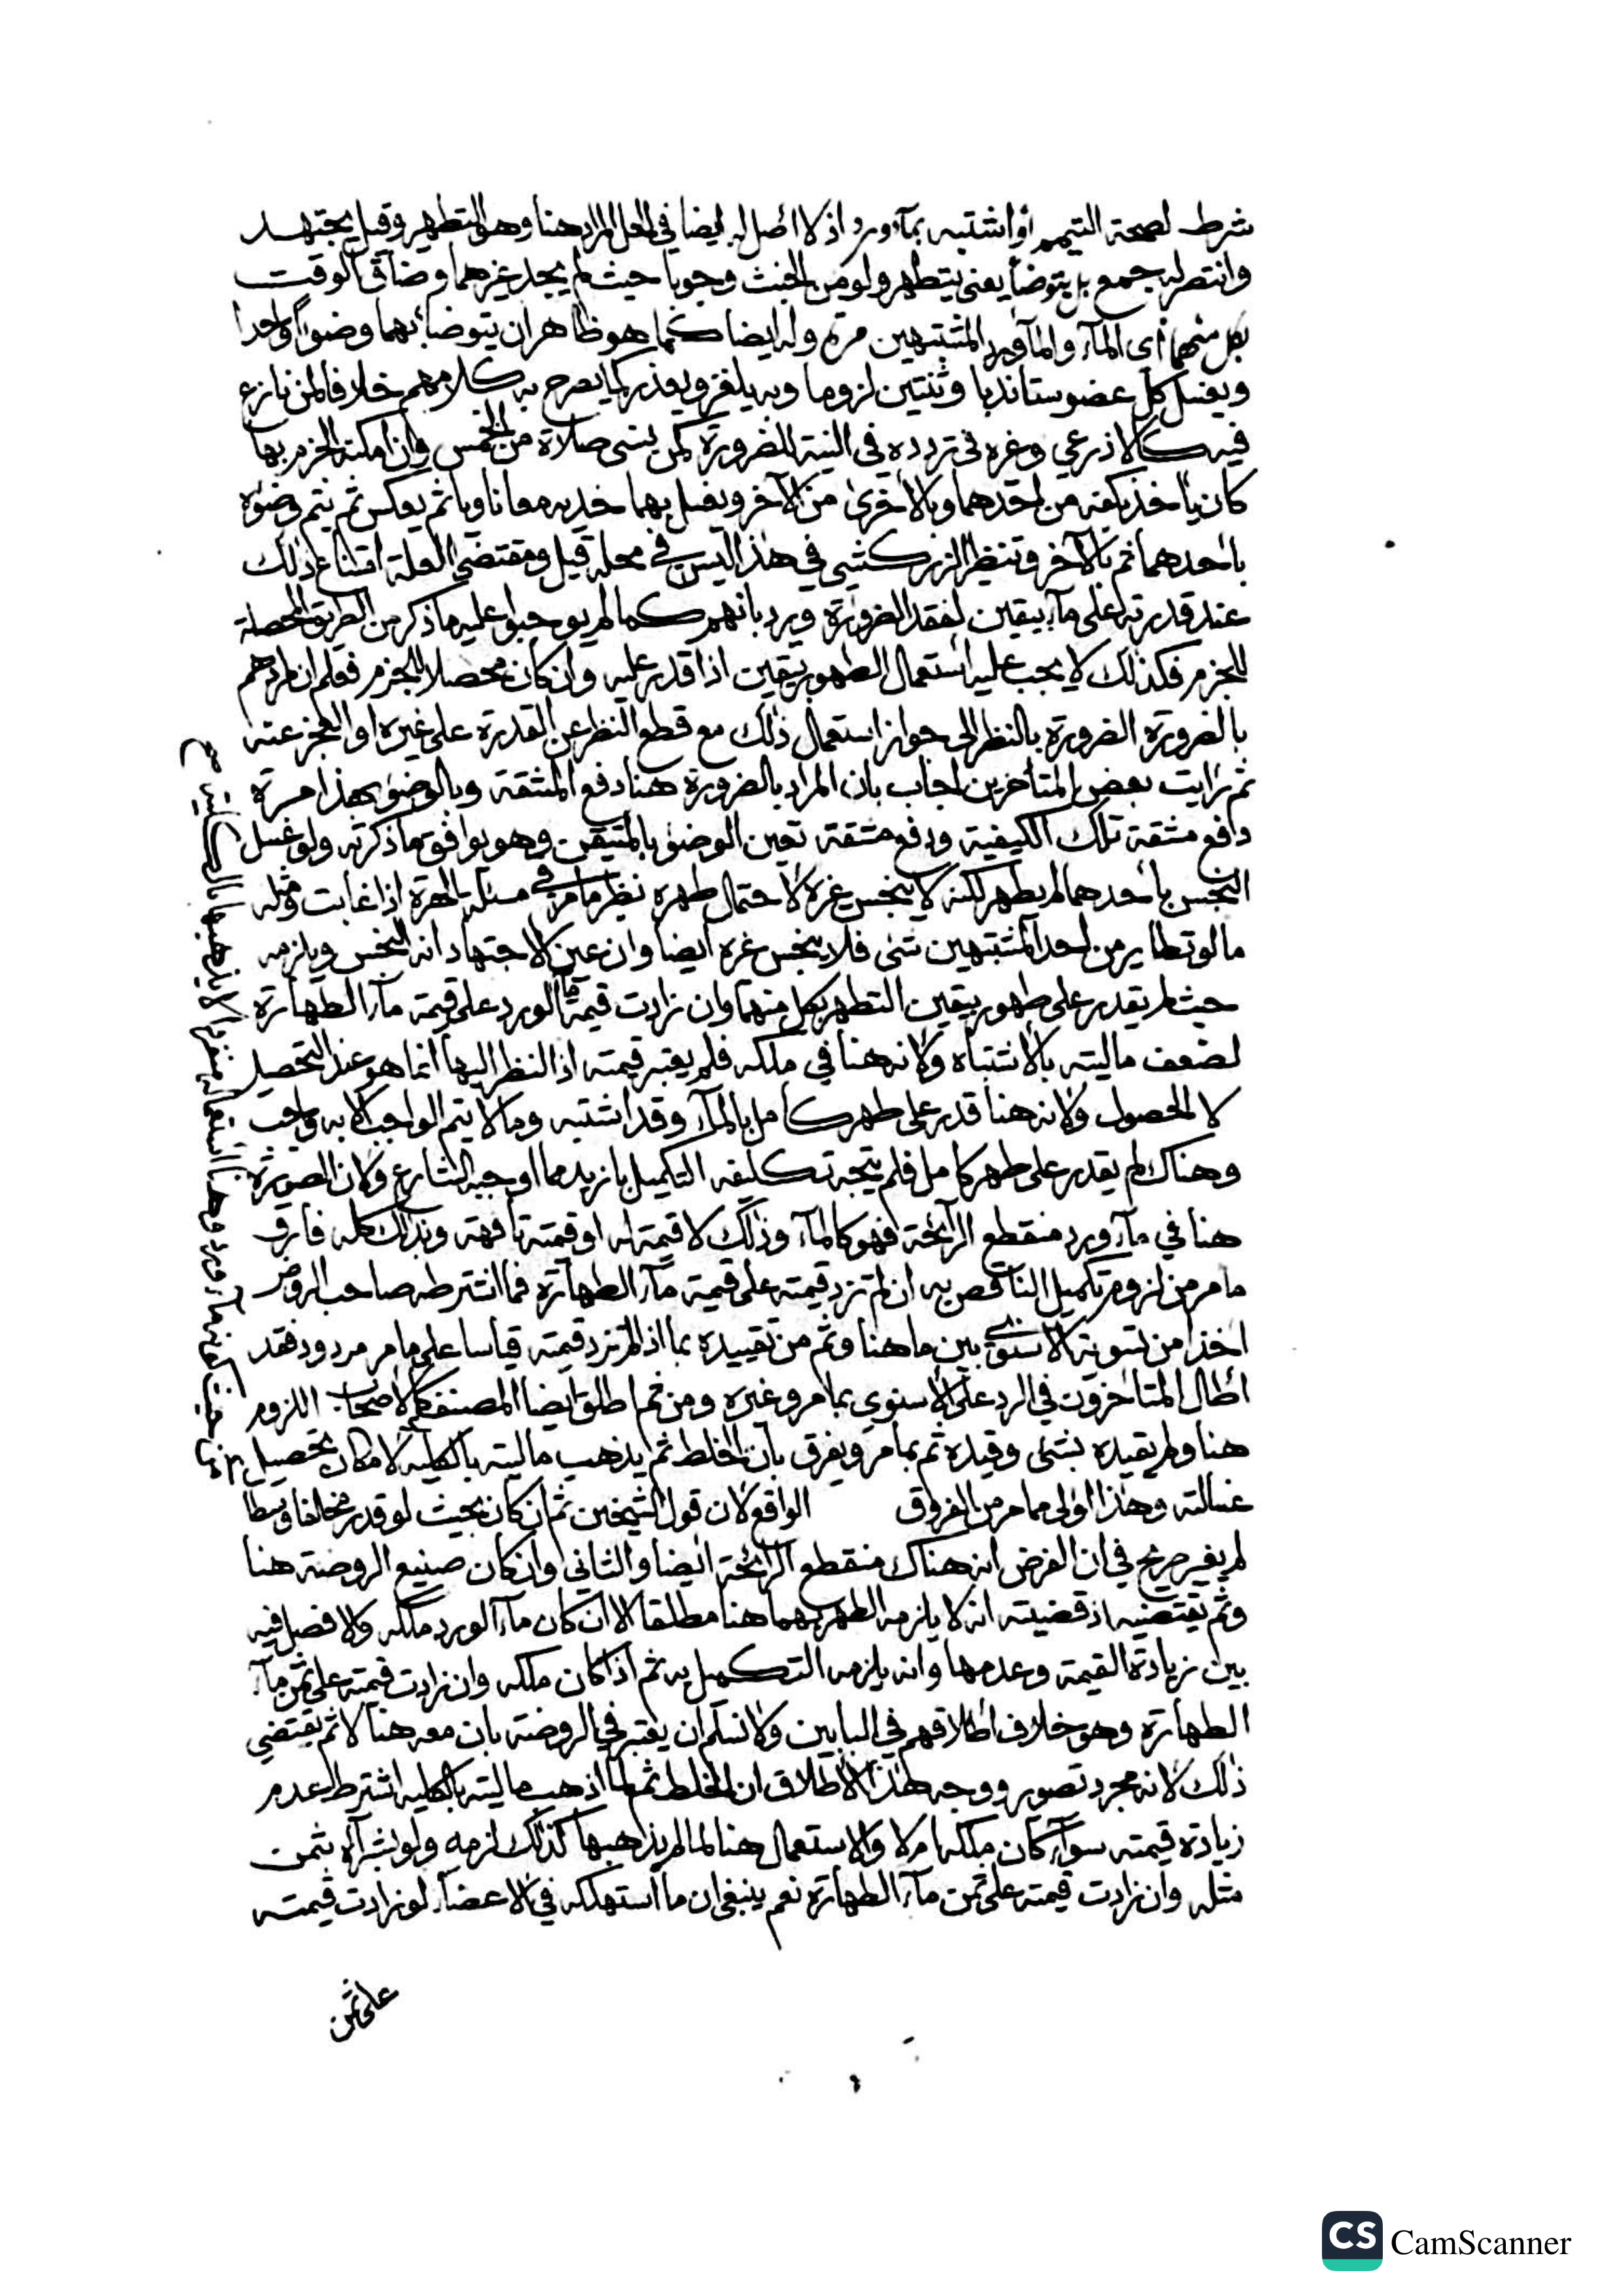 شرط لصحة التيمم أو اشتبه بماء ورد اذ لا اصل له ايضا في المحل المراد هنا وهو التطهير وقيل يجتهد
وانتصر له جمع بل يتوضأ يعني يتطهر ولو من الخبث وجوبا حيث لم يجد غيرهما وضاق الوقت
بكل منهما أي الماء والماء ورد المشتبهين مرة وله ايضا كما هو ظاهر ان يتوضأ بهما وضوءا واحدا
ويغسل كل عضو ستا ندبا وثنتين لزوما وبه يلغز ويعذر كما يصرح به كلامهم خلافا لمن نازع
فيه كالاذرعي وغيره في تردده في النية للضرورة كمن نسي صلاة من الخمس وان امكنه الجزم بها
كان يأخذ بكفه من احدهما وبالاخرى من الآخر ويغسل بهما خديه معا ناويا ثم يعكس ثم يتم وضوءه
باحدهما ثم بالآخر وتنظير الزركشي في هذا ليس في محله قيل ومقتضى العلة امتناع ذلك
عند قدرته على ماء بيقين لفقد الضرورة ويرد بانهم كما لم يوجبوا عليه ما ذكر من الطريق المحصلة
للجزم فكذلك لا يجب عليه استعمال الطهور بيقين اذا قدر عليه وان كان محصلا للجزم فعلم ان مرادهم
بالضرورة الضرورة بالنظر الى جواز استعمال ذلك مع قطع النظر عن القدرة على غيره او العجز عنه
ثم رايت بعض المتأخرين اجاب بان المراد بالضرورة هنا دفع المشقة وبالوضوء بهذا مرة
دافع مشقة تلك الكيفية ودفع مشقة تعين الوضوء بالمتيقن وهو يوافق ما ذكرته ولو غسل
النجس باحدهما لم يطهر لكنه لا ينجس غيره لاحتمال طهره نظير ما مر في مسئلة الهرة اذا غابت ومثله
ما لو تطاير من احد المشتبهين شئ فلا ينجس غيره ايضا وان عين الاجتهاد انه النجس ويلزمه
حيث لم يقدر على طهور بيقين التطهر بكل منهما وان زادت قيمة ماء الورد على قيمة ماء الطهارة
لضعف ماليته بالاشتباه ولانه هنا في ملكه فلم يعتبر قيمته اذ النظر اليها انما هو عند التحصيل
لا الحصول ولانه هنا قدر على طهر كامل بالماء وقد اشتبه وما لا يتم الواجب الا به واجب
وهناك لم يقدر على طهر كامل فلم يتجه تكليفه التكميل بازيد مما اوجبه الشارع ولان الصورة
هنا في ماء ورد منقطع الرائحة فهو كالماء وذلك لا قيمة له او قيمته تافهة وبذلك كله فارق
ما مر من لزوم تكميل الناقص به ان لم تزد قيمته على قيمة ماء الطهارة فما اشترطه صاحب الروض
اخذا من تسوية الاسنوي بين ما هنا وثم من تقييده بما اذا لم تزد قيمته قياسا على ما مر مردود فقد
اطال المتأخرون في الرد على الاسنوي بما مر وغيره ومن ثم اطلق ايضا المصنف كالاصحاب اللزوم
هنا ولم يقيده بشئ وقيده ثم بما مر ويفرق بان الخلط ثم يذهب ماليته بالكلية لا مكان تحصيل
غسالته وهذا اولى مما مر من الفروق الواقع لان قول الشيخين ثم ان كان بحيث لو قدر مخالفا وسطا
لم يغير صريح في ان الفرض انه هناك منقطع الرائحة ايضا والثاني وان كان صنيع الروضة هنا
وثم يقتضيه اذ قضيته انه لا يلزمه الطهر بهما هنا مطلقا الا ان كان ماء الورد ملكه ولا فصل فيه
بين زيادة القيمة وعدمها وانه يلزمه التكميل به ثم اذا كان ملكه وان زادت قيمته على ثمن ماء
الطهارة وهو خلاف اطلاقهم في البابين ولا نسلم ان يعتبر في الروضة بان معه هنا لا ثم يقتضي
ذلك لانه مجرد تصوير ووجه هذا الاطلاق ان الخلط ثم لما اذهب ماليته بالكلية اشترط عدم
زيادة قيمته سواء كان ملكه ام لا والاستعمال هنا لما لم يذهبها كذلك لزمه ولو بشرائه بثمن
مثله وان زادت قيمته على ثمن ماء الطهارة نعم ينبغي ان ما استهلكه في الاعضاء لو زادت قيمته
على ثمن
CS CamScanner